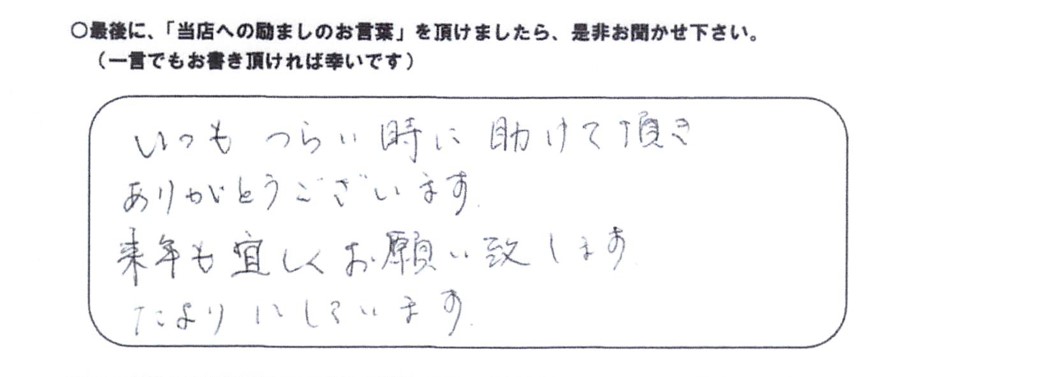 ○最後に、「当店への励ましのお言葉」を頂けましたら、是非お聞かせ下さい。
（一言でもお書き頂ければ幸いです）
いつも つらい時に 助けて頂き
ありがとうございます.
来年も宜しくお願い致します.
たよりにしています.